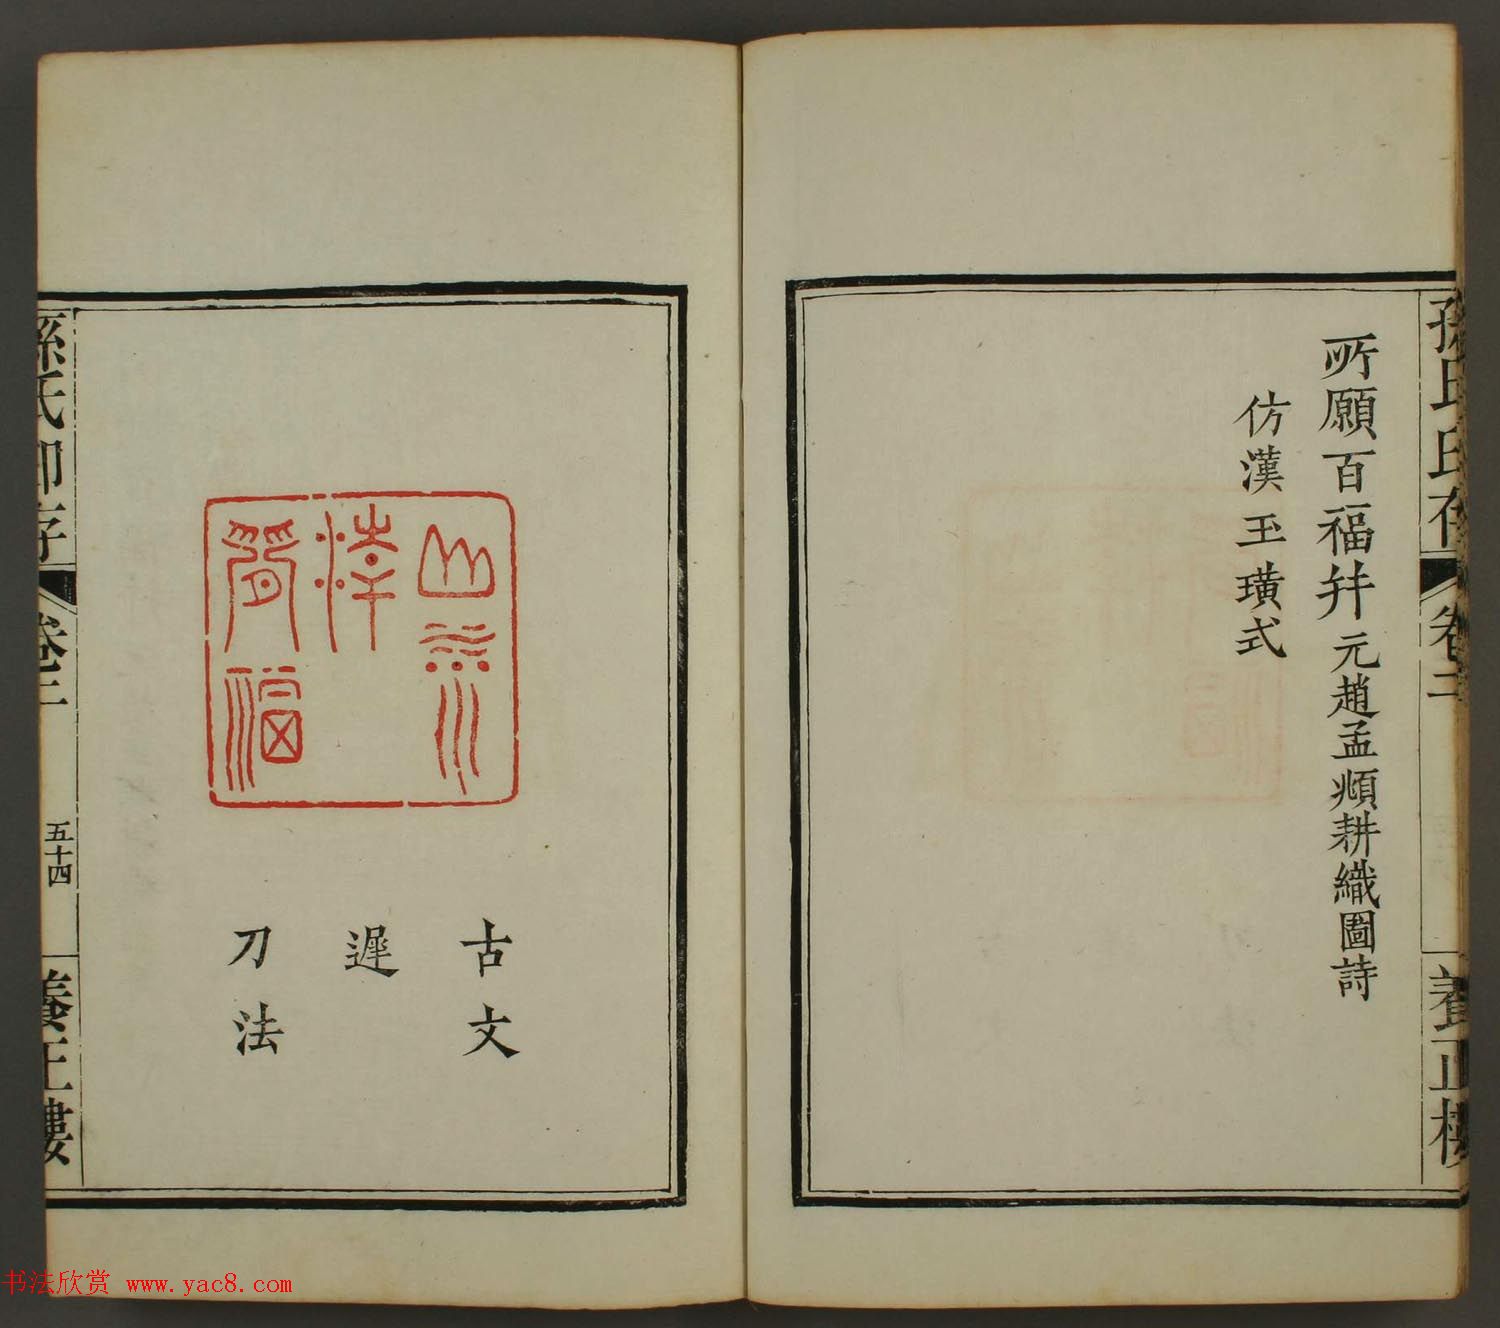 孫氏印存 卷二 養正樓
所願百福并元趙孟頫耕織圖詩
仿漢玉璜式
古文
遲
刀法
孫氏印存 卷二 五十四 養正樓
书法欣赏 www.yac8.com